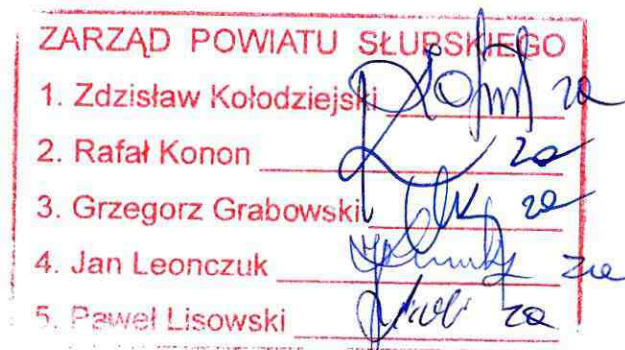 ZARZĄD POWIATU SŁUBSKIEGO
1. Zdzisław Kołodziejski za
2. Rafał Konon za
3. Grzegorz Grabowski za
4. Jan Leonczuk za
5. Paweł Lisowski za